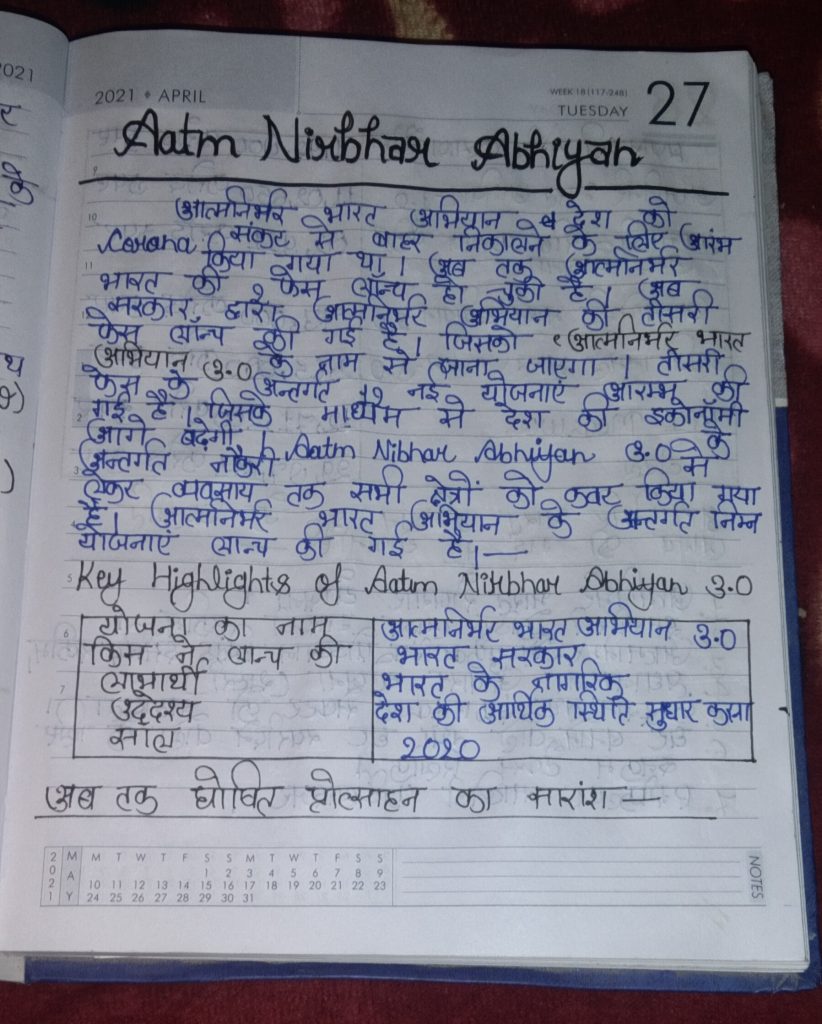 2021
2021 • APRIL
WEEK 18 (117-248)
TUESDAY 27
Aatm Nirbhar Abhiyan
आत्मनिर्भर भारत अभियान देश को
Corona संकट से बाहर निकालने के लिए आरंभ
किया गया था। अब तक आत्मनिर्भर
भारत की 2 फेस लॉन्च हो चुकी है। अब
सरकार द्वारा आत्मनिर्भर अभियान की तीसरी
फेस लॉन्च की गई है। जिसको आत्मनिर्भर भारत
अभियान 3.0 के नाम से जाना जाएगा। तीसरी
फेस के अन्तर्गत नई योजनाएं आरम्भ की
गई है। जिसके माध्यम से देश की इकोनॉमी
आगे बढ़ेगी। Aatm Nibhar Abhiyan 3.0 के
अन्तर्गत नौकरी से
लेकर व्यवसाय तक सभी क्षेत्रों को कवर किया गया
है। आत्मनिर्भर भारत अभियान के अन्तर्गत निम्न
योजनाएं लान्च की गई है।—
Key Highlights of Aatm Nirbhar Abhiyan 3.0
योजना का नाम आत्मनिर्भर भारत अभियान 3.0
किस ने लान्च की भारत सरकार
लाभार्थी भारत के नागरिक
उद्देश्य देश की आर्थिक स्थिति सुधार करना
साल 2020
अब तक घोषित प्रोत्साहन का सारांश —
2021 MAY
M T W T F S S M T W T F S S
1 2 3 4 5 6 7 8 9
10 11 12 13 14 15 16 17 18 19 20 21 22 23
24 25 26 27 28 29 30 31
NOTES